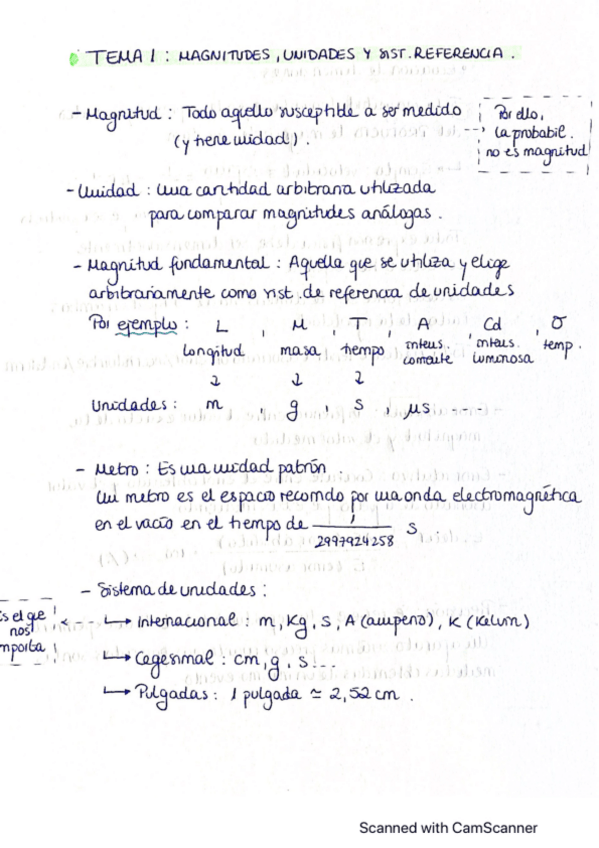 TEMA 1 : MAGNITUDES, UNIDADES Y SIST. REFERENCIA.
- Magnitud : Todo aquello susceptible a ser medido
(y tiene unidad).
Por ello,
la probabil.
no es magnitud
- Unidad : Una cantidad arbitraria utilizada
para comparar magnitudes análogas.
- Magnitud fundamental : Aquella que se utiliza y elige
arbitrariamente como sist. de referencia de unidades
Por ejemplo : L , M , T , A , Cd , σ
longitud masa tiempo intens. corriente intens. luminosa temp.
↓ ↓ ↓
Unidades : m , g , s , μs ----
- Metro : Es una unidad patrón.
Un metro es el espacio recorrido por una onda electromagnética
en el vacío en el tiempo de 1/2997924258 s.
- Sistema de unidades :
Es el que
nos
importa
↳ Internacional : m, Kg, s, A (ampeno), K (Kelvin)
↳ Cegesimal : cm, g, s...
↳ Pulgadas : 1 pulgada ≃ 2,52 cm.
Scanned with CamScanner